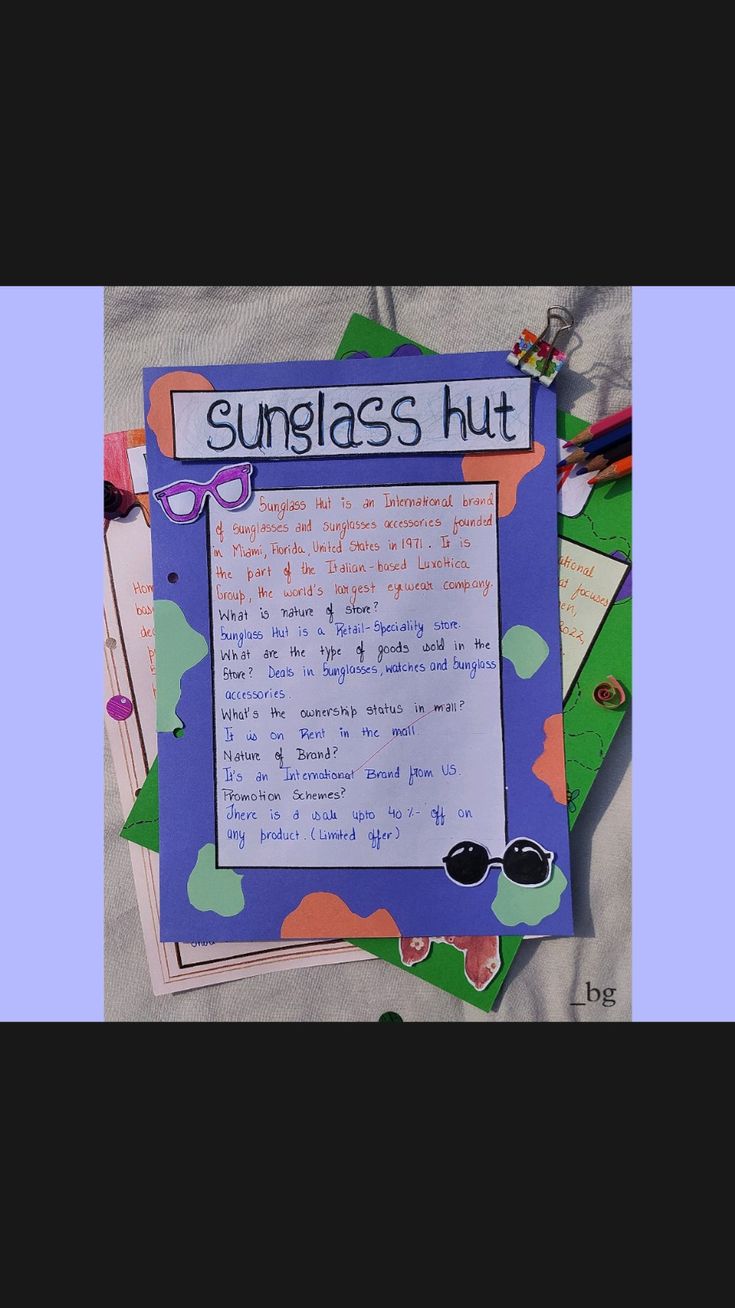 sunglass hut
Sunglass Hut is an International brand
of sunglasses and sunglasses accessories founded
in Miami, Florida, United States in 1971. It is
the part of the Italian-based Luxottica
Group, the world's largest eyewear company.
What is nature of store?
Sunglass Hut is a Retail-Speciality store.
What are the type of goods sold in the
Store? Deals in Sunglasses, watches and Sunglass
accessories.
What's the ownership status in mall?
It is on Rent in the mall
Nature of Brand?
It's an International Brand from US.
Promotion Schemes?
There is a sale upto 40 % off on
any product. (Limited offer)
Hom
bas
de
ational
at focuses
en,
2022,
_bg